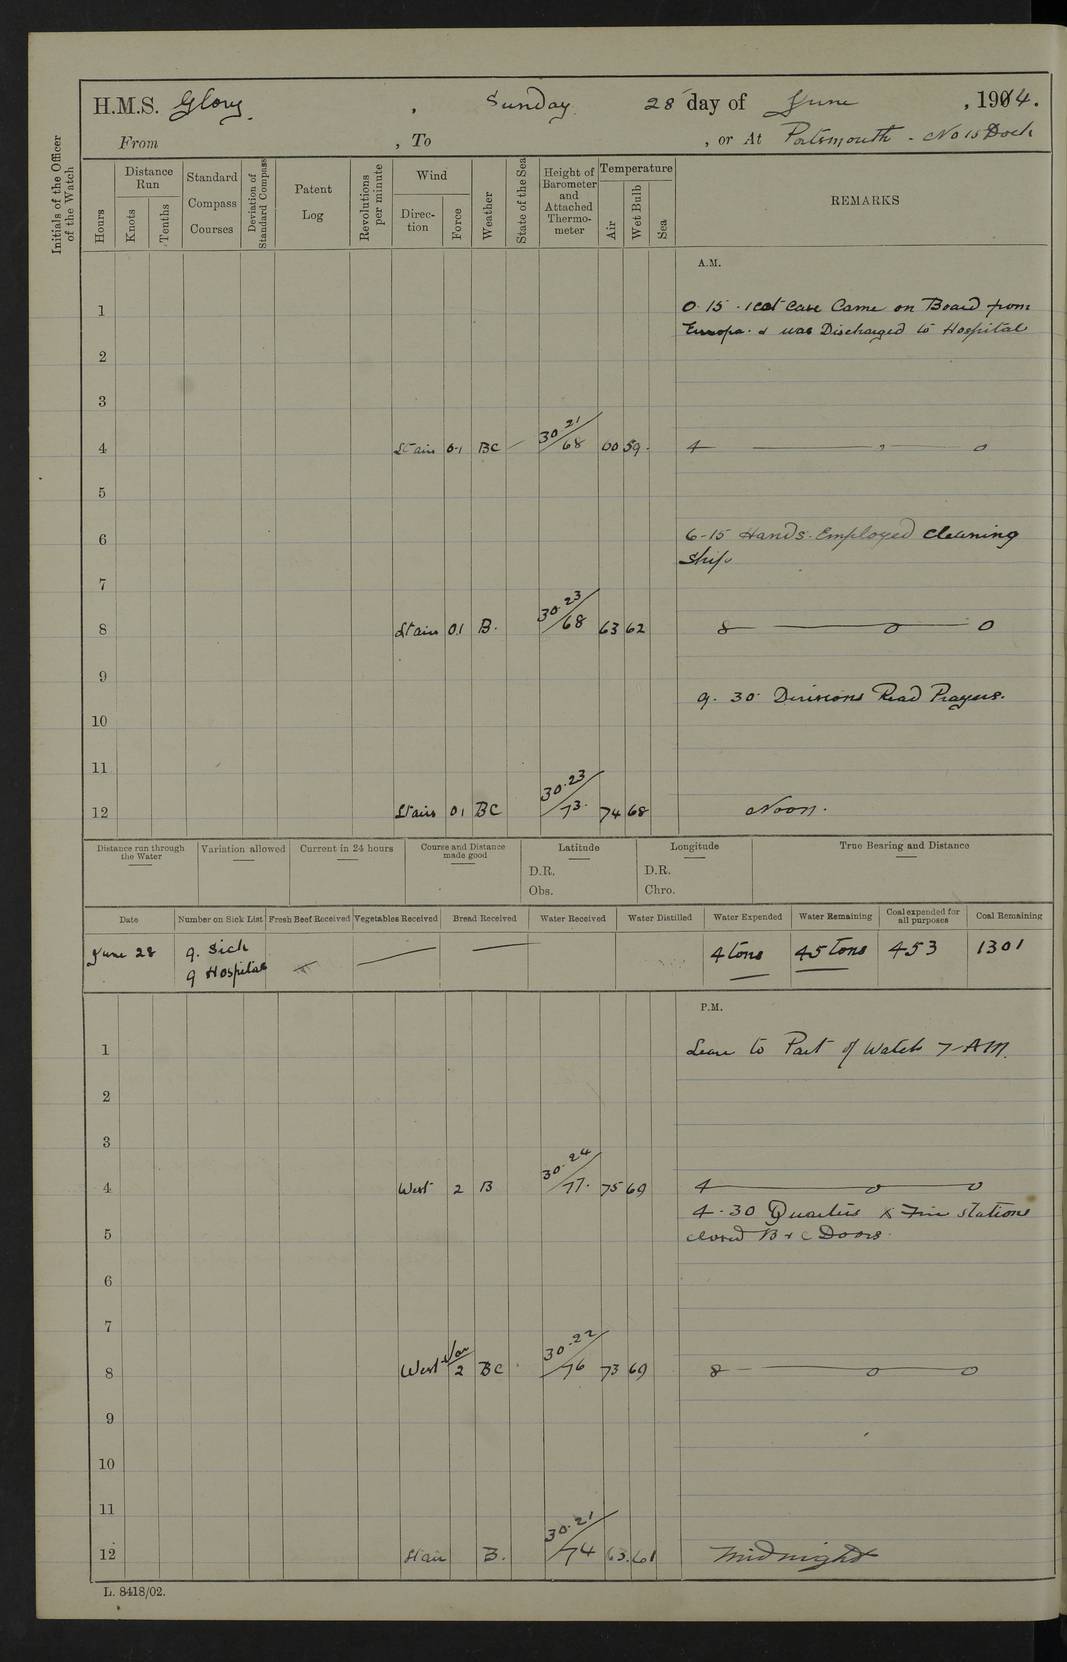 H.M.S. Glory, Sunday 28 day of June, 1914.
From , To , or At Portsmouth - No 15 Dock
Initials of the Officer of the Watch
Hours
Distance Run
Knots
Tenths
Standard Compass Courses
Deviation of Standard Compass
Patent Log
Revolutions per minute
Wind
Direction
Force
Weather
State of the Sea
Height of Barometer and Attached Thermometer
Temperature
Air
Wet Bulb
Sea
REMARKS
A.M.
1 0.15. 1 cot Case Came on Board from
Europa. & was Discharged to Hospital
2
3
4 Lt airs 0.1 BC 30.21/68 60 59. 4
5
6 6-15 Hands Employed cleaning
Ship
7
8 Lt airs 0.1 B. 30.23/68 63 62 8
9 9.30 Divisions Read Prayers.
10
11
12 Lt airs 01 BC 30.23/73. 74 68 Noon.
Distance run through the Water
Variation allowed
Current in 24 hours
Course and Distance made good
Latitude
D.R.
Obs.
Longitude
D.R.
Chro.
True Bearing and Distance
Date Number on Sick List Fresh Beef Received Vegetables Received Bread Received Water Received Water Distilled Water Expended Water Remaining Coal expended for all purposes Coal Remaining
June 28 9. Sick 4 tons 45 tons 453 1301
9 Hospital
P.M.
1 Leave to Part of Watch 7 AM.
2
3
4 West 2 B 30.24/77. 75 69 4
4.30 Quarters & Fire Stations
5 closed B & C Doors.
6
7
8 West Var/2 BC 30.22/76 73 69 8
9
10
11
12 Lt air B. 30.21/74 63.61 Midnight
L. 8418/02.